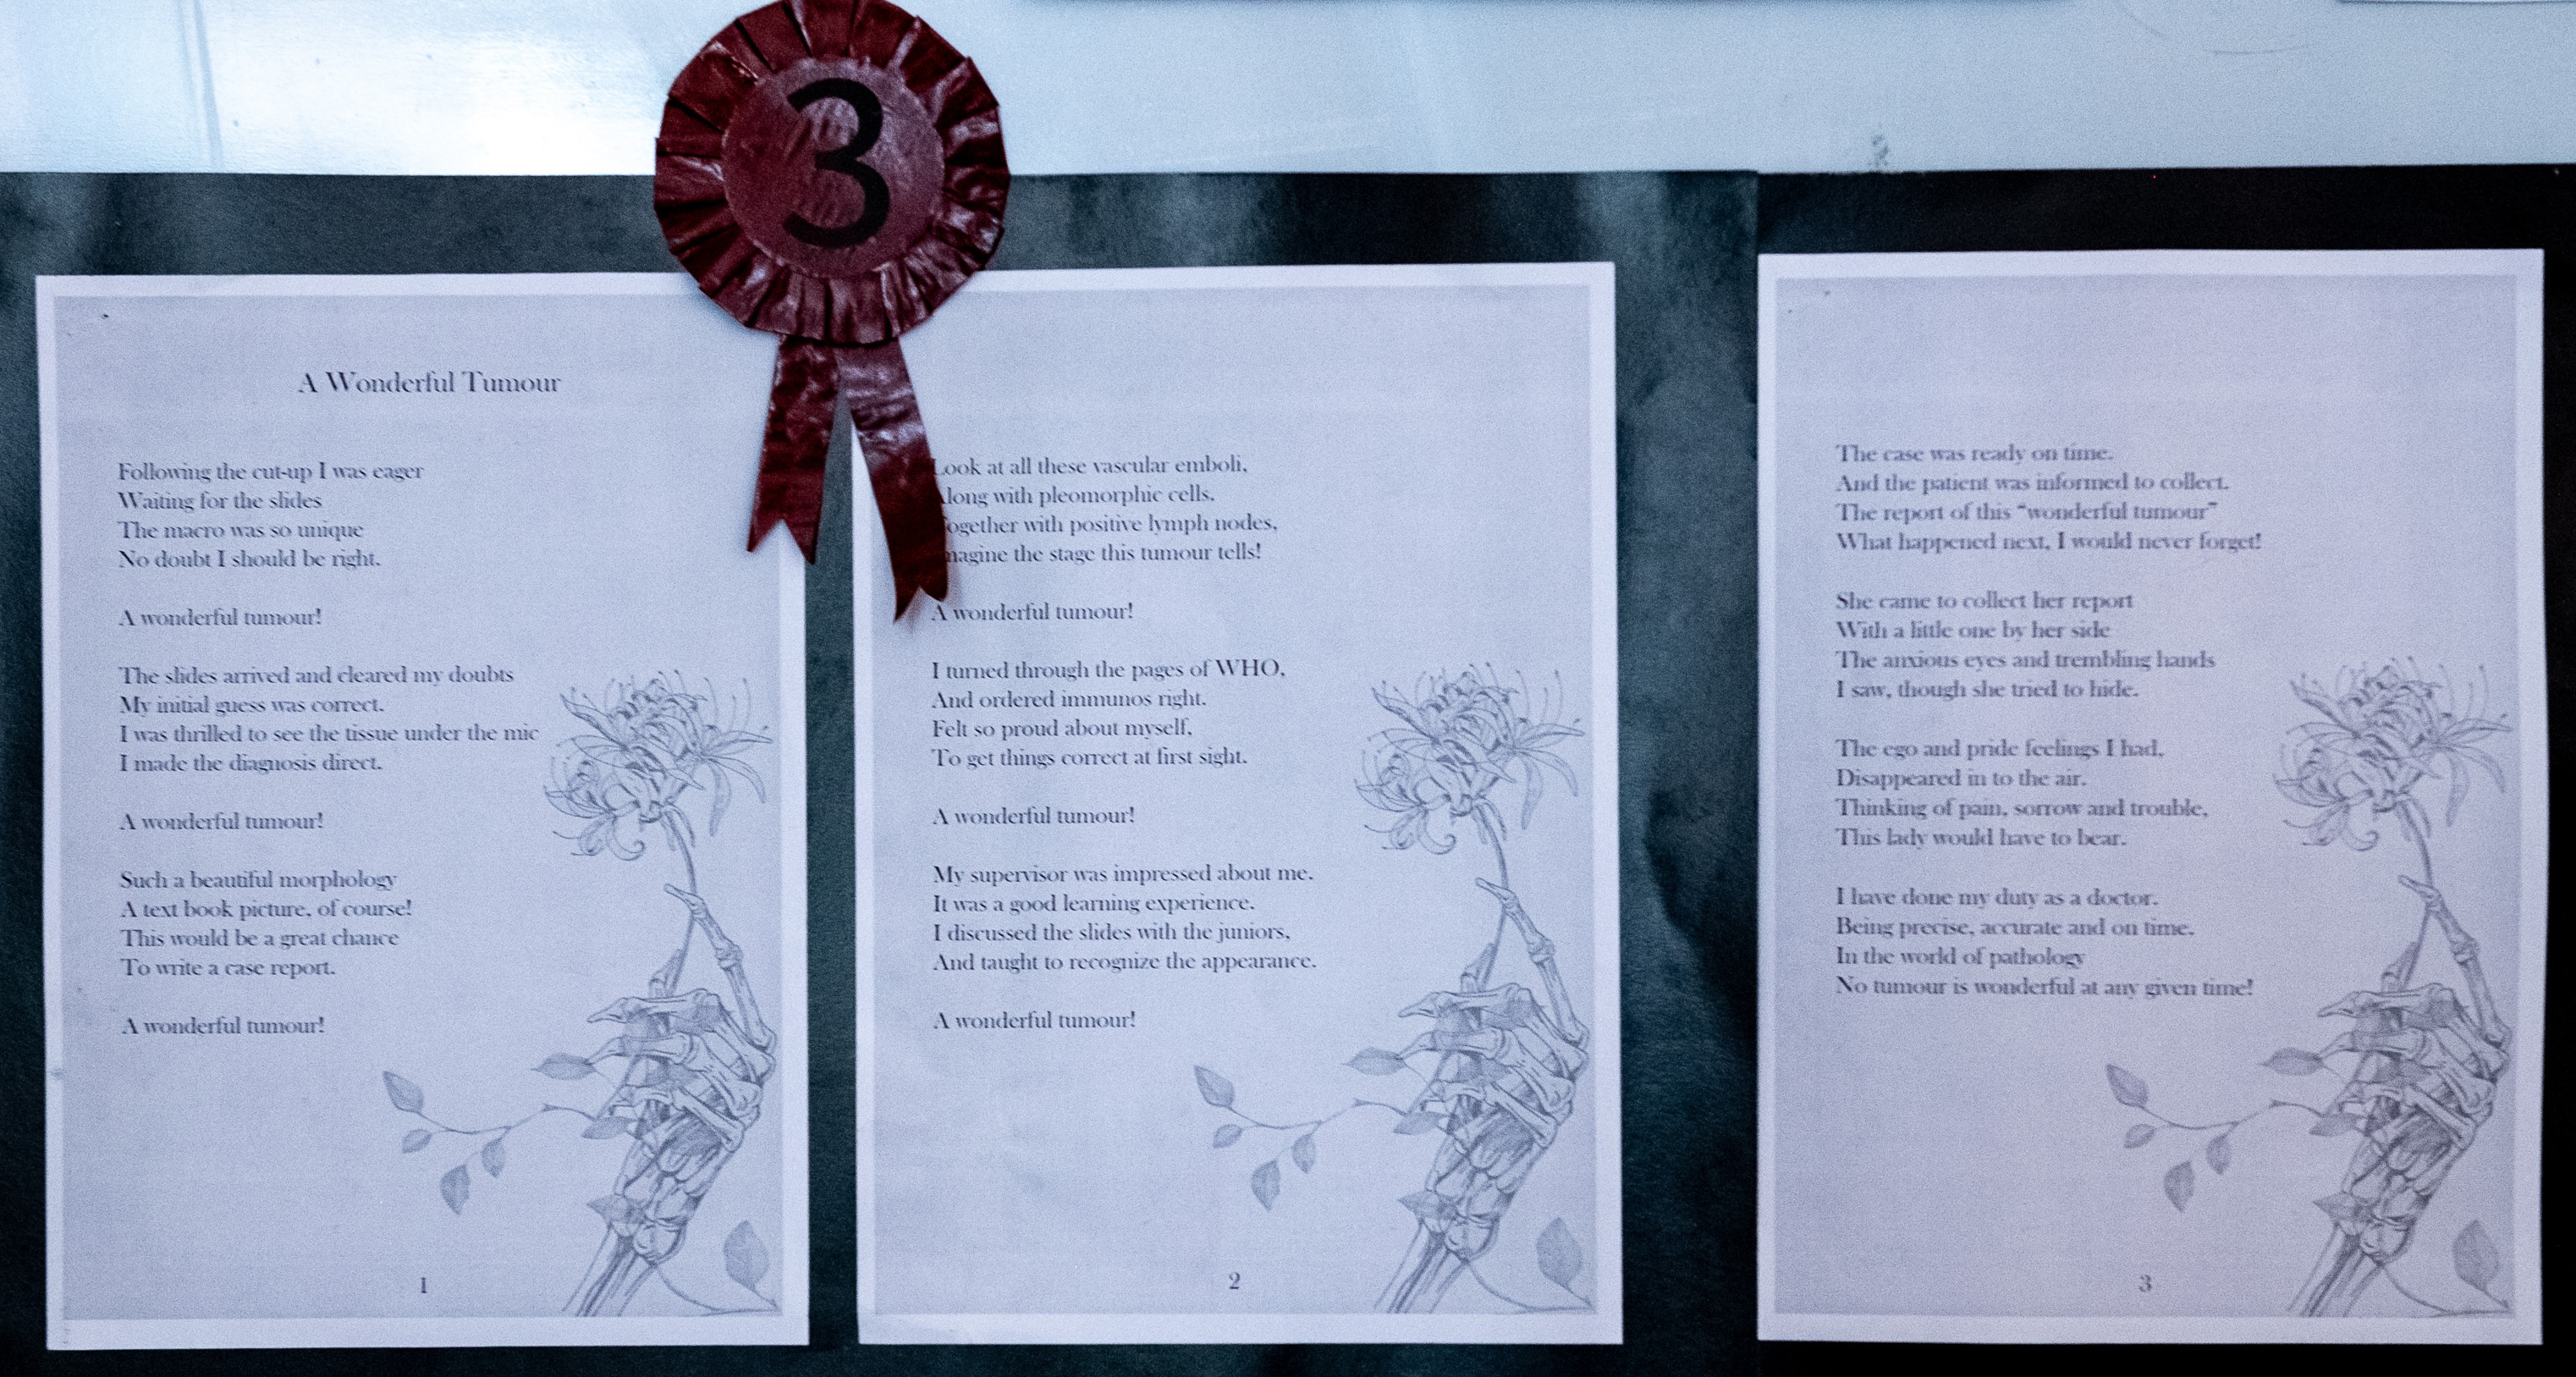 3
A Wonderful Tumour
Following the cut-up I was eager
Waiting for the slides
The macro was so unique
No doubt I should be right.
A wonderful tumour!
The slides arrived and cleared my doubts
My initial guess was correct.
I was thrilled to see the tissue under the mic
I made the diagnosis direct.
A wonderful tumour!
Such a beautiful morphology
A text book picture, of course!
This would be a great chance
To write a case report.
A wonderful tumour!
1
Look at all these vascular emboli,
Along with pleomorphic cells.
Together with positive lymph nodes,
Imagine the stage this tumour tells!
A wonderful tumour!
I turned through the pages of WHO,
And ordered immunos right.
Felt so proud about myself,
To get things correct at first sight.
A wonderful tumour!
My supervisor was impressed about me.
It was a good learning experience.
I discussed the slides with the juniors,
And taught to recognize the appearance.
A wonderful tumour!
2
The case was ready on time.
And the patient was informed to collect.
The report of this “wonderful tumour”
What happened next, I would never forget!
She came to collect her report
With a little one by her side
The anxious eyes and trembling hands
I saw, though she tried to hide.
The ego and pride feelings I had,
Disappeared in to the air.
Thinking of pain, sorrow and trouble,
This lady would have to bear.
I have done my duty as a doctor.
Being precise, accurate and on time.
In the world of pathology
No tumour is wonderful at any given time!
3